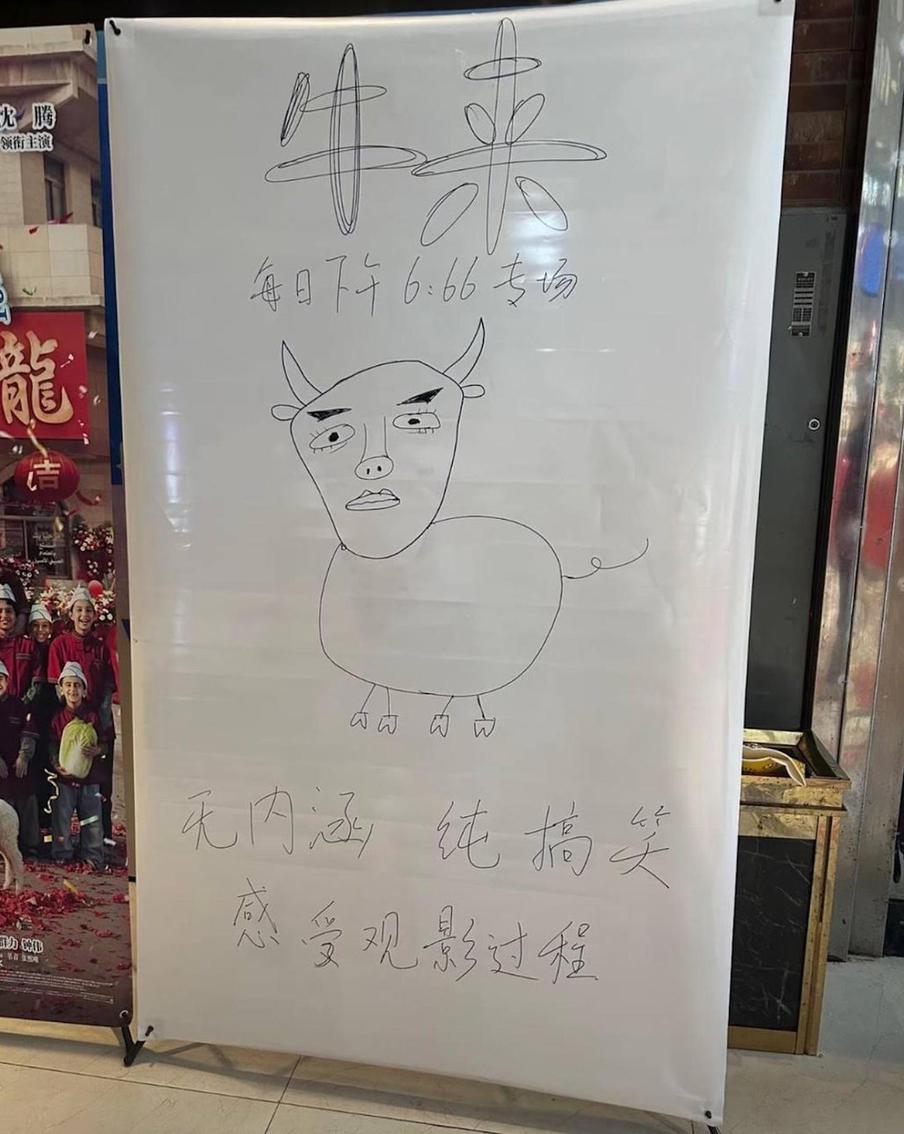 牛来
每日下午 6:66 专场
无内涵 纯搞笑
感受观影过程
沈 腾
领衔主演
龍
吉